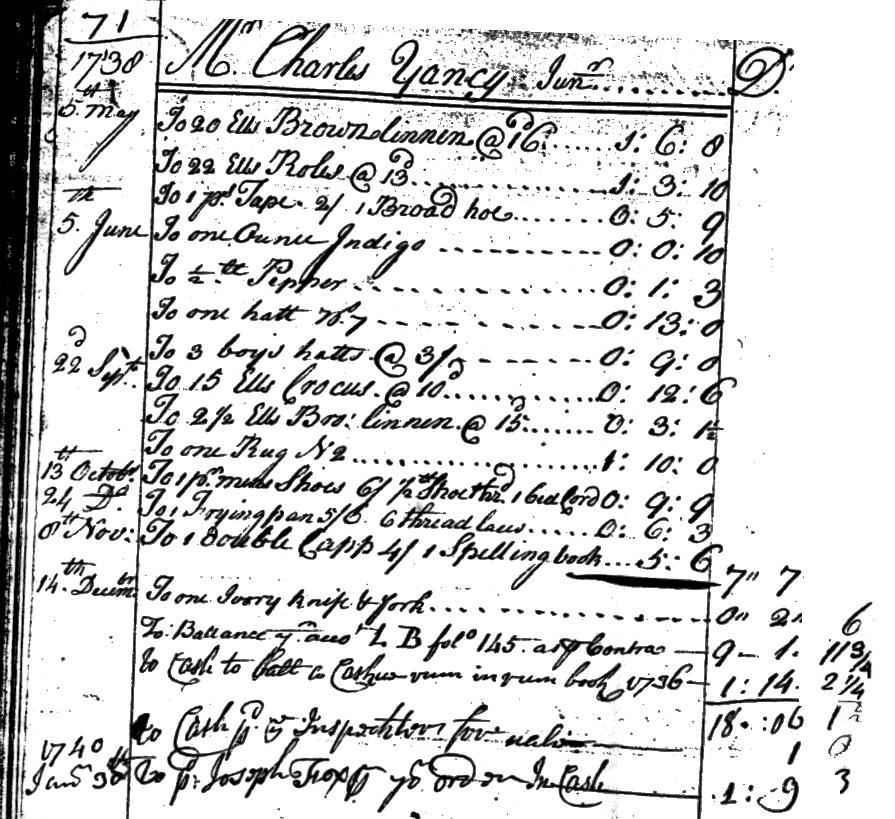 71
1738 Mr. Charles Yancy Junr. Dr.
5th May To 20 Ells Brown linnen @ 16d 1: 6: 8
To 22 Ells Roles @ 13d 1: 3: 10
To 1 ps. Tape 2/ 1 Broad hoe 0: 5: 9
5th June To one Ounce Indigo 0: 0: 10
To ½ lb Pepper 0: 1: 3
To one hatt No. 7 0: 13: 0
To 3 boys hatts @ 3/ 0: 9: 0
22d Sept. To 15 Ells Crocus @ 10d 0: 12: 6
To 2 ½ Ells Bro: linnen @ 15d 0: 3: 1½
To one Rug N2 1: 10: 0
13th Octobr. To 1 pr. mens Shoes 6/ ½ lb Shoe thrd. 1 bed Cord 0: 9: 9
24 Do. To 1 Frying pan 5/6 6 thread laces 0: 6: 3
8th Nov: To 1 double Capp 4/ 1 Spelling book 5: 6
7" 7
14th Decembr. To one Ivory knife & fork 0" 2" 6
To Ballance yr. accot. L B folo 145 as p Contra 9 - 1. 11¾
to Cash to ball in rum book 1736 1: 14. 2¼
18: 06 1½
to Cash pd. Inspecktors for 1 0
1740 Janr. 30th to p. Joseph Fox p yr order In Cash 1: 9 3